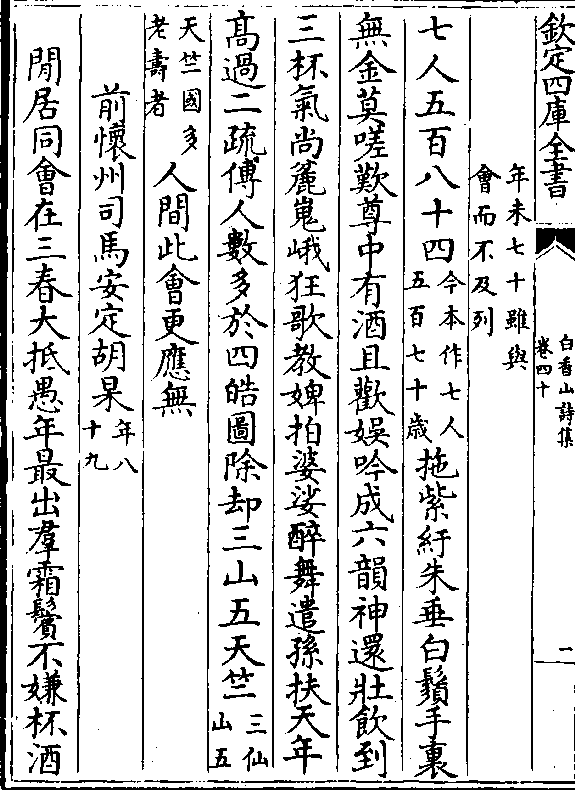 欽定四庫全書
白香山詩集
卷四十
二
年未七十雖與
會而不及列
七人五百八十四今本作七人五百七十歲拖紫紆朱垂白鬚手裏
無金莫嗟歎尊中有酒且歡娛吟成六韻神還壯飲到
三杯氣尚麄嵬峨狂歌教婢拍婆娑醉舞遣孫扶天年
高過二疏傅人數多於四皓圖除却三山五天竺三仙山五
天竺國多老壽者人間此會更應無
前懷州司馬安定胡杲年八十九
閒居同會在三春大抵愚年最出羣霜鬢不嫌杯酒